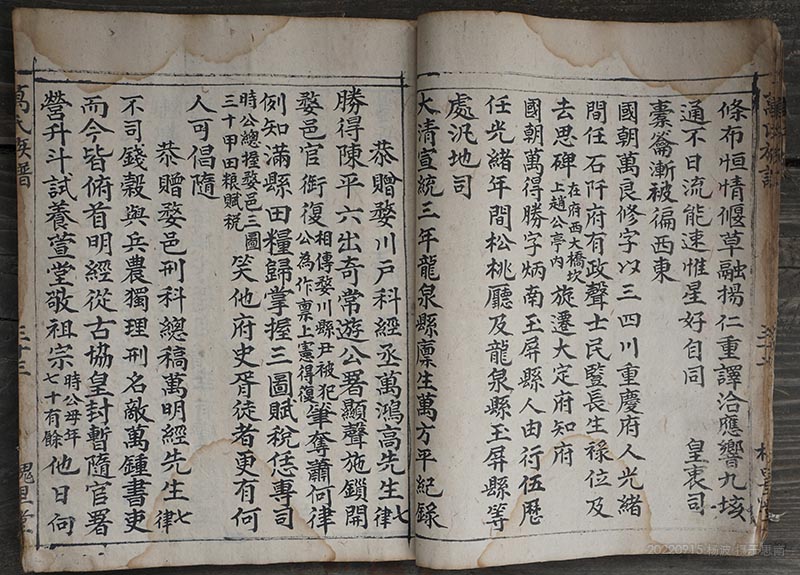 條布恒情偃草融揚仁重譯洽應響九垓
通不日流能速惟星好自同　皇衷司
橐籥漸被徧西東
國朝萬良修字以三四川重慶府人光緒
間任石阡府有政聲士民豎長生祿位及
去思碑在府西大橋坎上趙公亭內旋遷大定府知府
國朝萬得勝字炳南玉屏縣人由行伍歷
任光緒年間松桃廳及龍泉縣玉屏縣等
處汎地司
大清宣統三年龍泉縣廩生萬方平紀錄
恭贈婺川戶科經丞萬鴻高先生七律
勝得陳平六出奇常遊公署顯聲施鎖開
婺邑官銜復相傳婺川縣尹被犯公為作禀上憲得復筆奪蕭何律
例知滿縣田糧歸掌握三圖賦稅恁專司
時公總握婺邑三圖三十甲田粮賦稅笑他府史胥徒者更有何
人可倡隨
恭贈婺邑刑科總稿萬明經先生七律
不司錢穀與兵農獨理刑名敵萬鍾書吏
而今皆俯首明經從古協皇封暫隨官署
營升斗試養萱堂敬祖宗時公母年七十有餘他日向
萬氏族譜
三十三
20220915 杨波 摄于思南